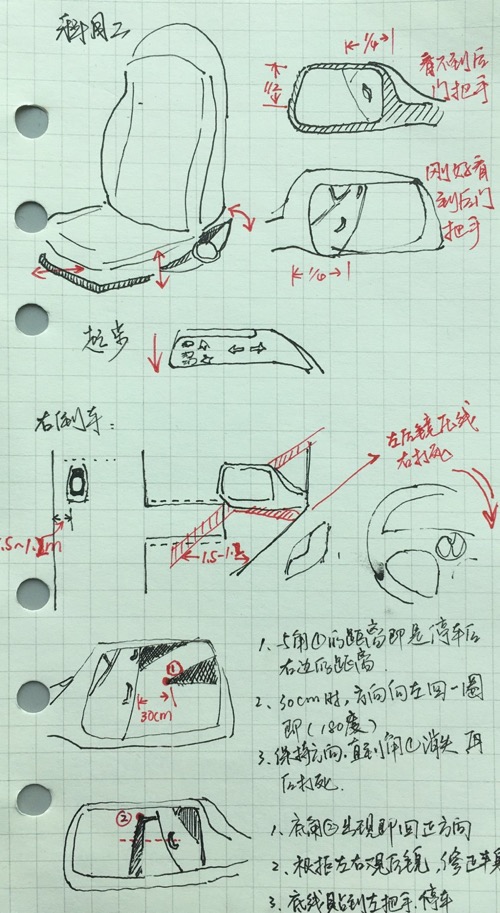 科目二
1/4
1/2
看不到后
门把手
刚好看
到后门
把手
1/6
起步
右倒车：
左后镜压线
右打死
.5~1.2m
1.5-1.2
①
30cm
1、与角①的距离即是停车后
右边的距离.
2、30cm时，方向向左回一圈
即（180度）
3、保持方向，直到角①消失再
后打死.
②
1、底角②出现即回正方向
2、根据左右观后镜，修正车身
3、底线贴到左把手，停车